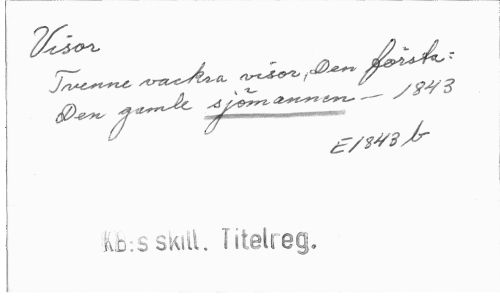 Visor
Tvenne vackra visor, Den första:
Den gamle sjömannen – 1843
E1843 b
KB:s skill. Titelreg.